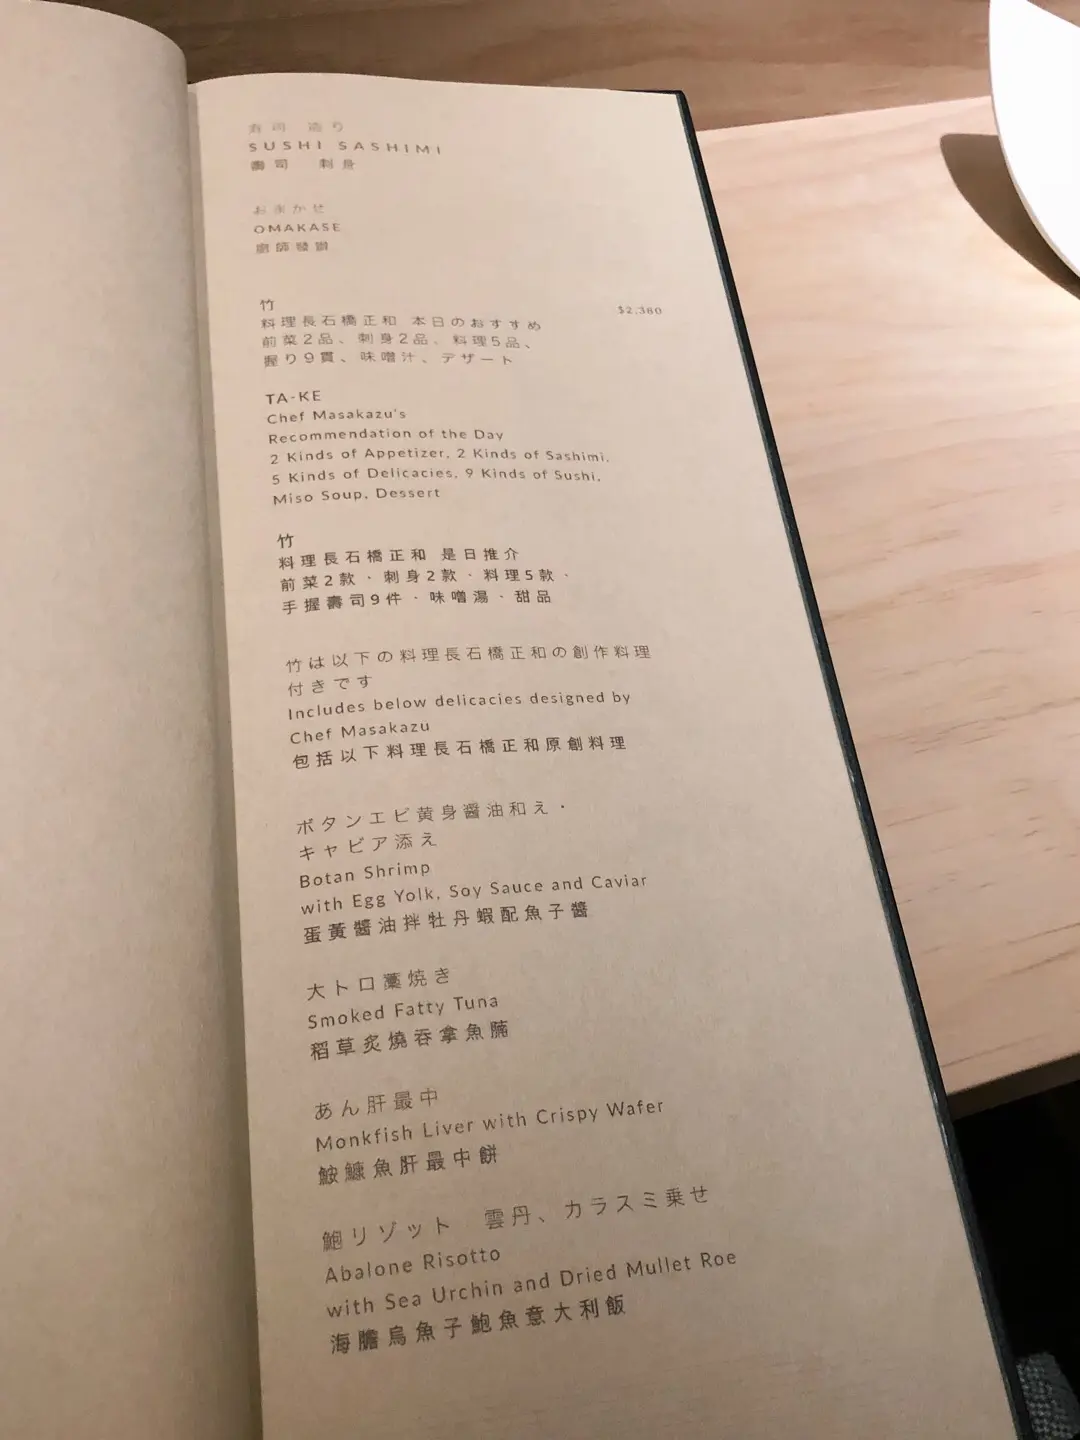 寿司 造り
SUSHI SASHIMI
壽司 刺身
おまかせ
OMAKASE
廚師發辦
竹
料理長石橋正和 本日のおすすめ
$2,380
前菜2品、刺身2品、料理5品、
握り9貫、味噌汁、デザート
TA-KE
Chef Masakazu's
Recommendation of the Day
2 Kinds of Appetizer, 2 Kinds of Sashimi,
5 Kinds of Delicacies, 9 Kinds of Sushi,
Miso Soup, Dessert
竹
料理長石橋正和 是日推介
前菜2款、刺身2款、料理5款、
手握壽司9件、味噌湯、甜品
竹は以下の料理長石橋正和の創作料理
付きです
Includes below delicacies designed by
Chef Masakazu
包括以下料理長石橋正和原創料理
ボタンエビ黄身醤油和え・
キャビア添え
Botan Shrimp
with Egg Yolk, Soy Sauce and Caviar
蛋黃醬油拌牡丹蝦配魚子醬
大トロ藁焼き
Smoked Fatty Tuna
稻草炙燒吞拿魚腩
あん肝最中
Monkfish Liver with Crispy Wafer
鮟鱇魚肝最中餅
鮑リゾット 雲丹、カラスミ乗せ
Abalone Risotto
with Sea Urchin and Dried Mullet Roe
海膽烏魚子鮑魚意大利飯